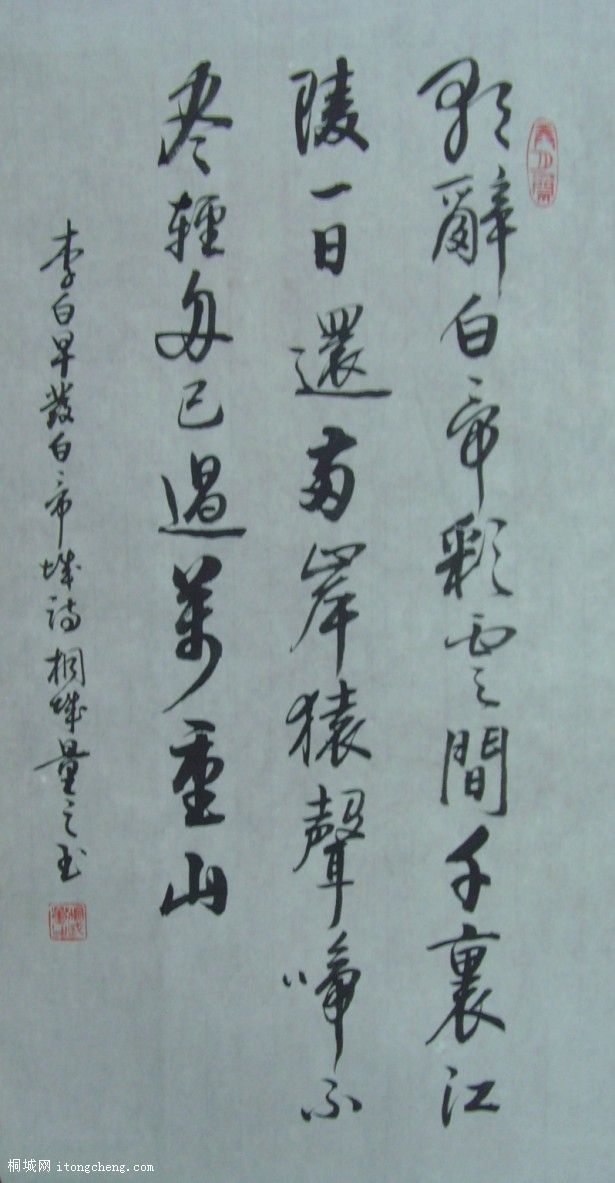 朝辭白帝彩雲間千裏江
陵一日還兩岸猿聲啼不
盡輕舟已過萬重山
李白早發白帝城詩桐城量之書
桐城网 itongcheng.com